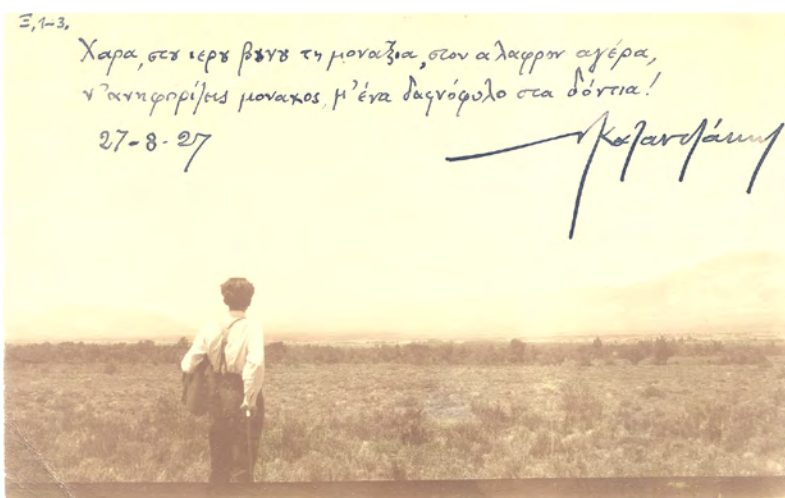 Ξ, 1-3.
Χαρα, στυ ιερυ βυνυ τη μοναξια, στον αλαφρον αγέρα,
ν' ανηφορίζεις μοναχος, μ' ένα δαφνόφυλο στα δόντια!
27-8-27
Ν Καζαντζάκης